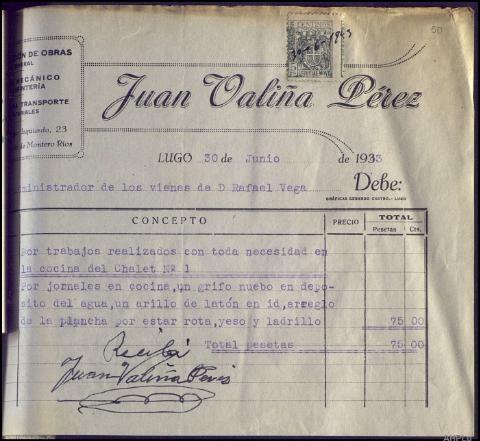 50
ÓN DE OBRAS
ECÁNICO
NTERÍA
TRANSPORTE
Izquierdo, 23
de Montero Ríos
CENTIMOS
30-6-1943
Juan Valiña Pérez
LUGO 30 de Junio de 1933
ministrador de los vienes de D Rafael Vega
Debe:
CONCEPTO PRECIO TOTAL
Pesetas Cts.
Por trabajos realizados con toda necesidad en
la cocina del Chalet Nº 1
Por jornales en cocina,un grifo nuebo en depo-
sito del agua,un arillo de latón en id,arreglo
de la plancha por estar rota,yeso y ladrillo 75 00
Total pesetas 75 00
Recibí
Juan Valiña Peris